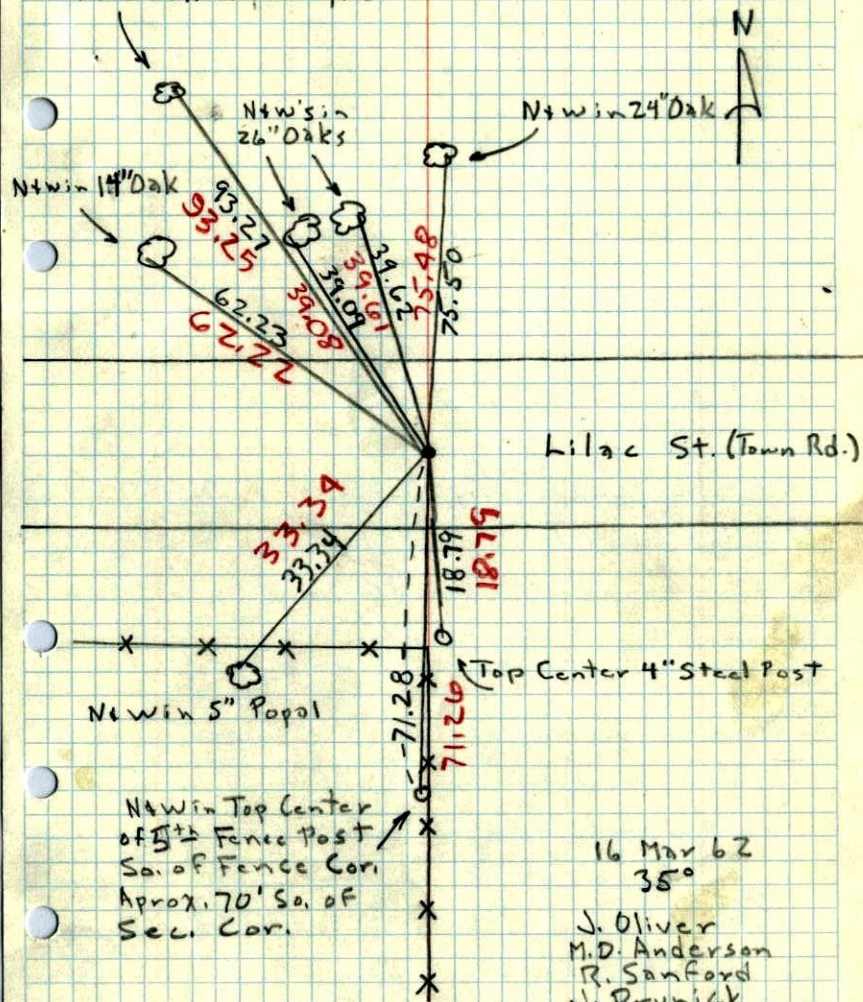 N
N&W's in
26" Oaks
N&W in 24" Oak
N&W in 14" Oak
93.27
93.25
39.62
39.61
39.09
39.08
75.48
75.50
62.23
62.22
Lilac St. (Town Rd.)
33.34
33.34
18.79
18.79
Top Center 4" Steel Post
71.28
71.26
N&W in 5" Popal
N&W in Top Center
of 5th Fence Post
So. of Fence Cor.
Aprox. 70' So. of
Sec. Cor.
16 Mar 62
35°
J. Oliver
M.D. Anderson
R. Sanford